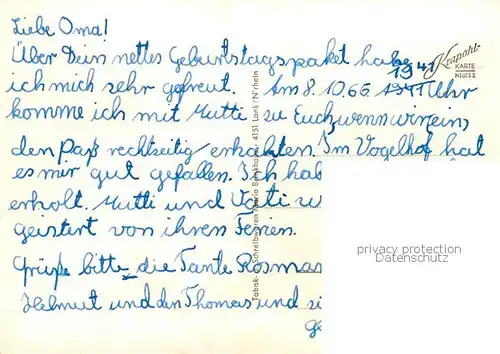 Liebe Oma!
Über Dein nettes Geburtstagspaket habe
ich mich sehr gefreut. Am 8.10.66 1941 Uhr
19 41
komme ich mit Mutti zu Euch, wenn wir ein
den Paß rechtzeitig erhalten. Im Vogelhof hat
es mir gut gefallen. Ich hab
erholt. Mutti und Vati
geistert von ihren Ferien.
Grüße bitte die Tante Rosmar
Helmut und den Thomas und
Krapohl-
KARTE
NEUSS 2
Tabak- Schreibwaren 4151 Lank / N'rhein
privacy protection
Datenschutz